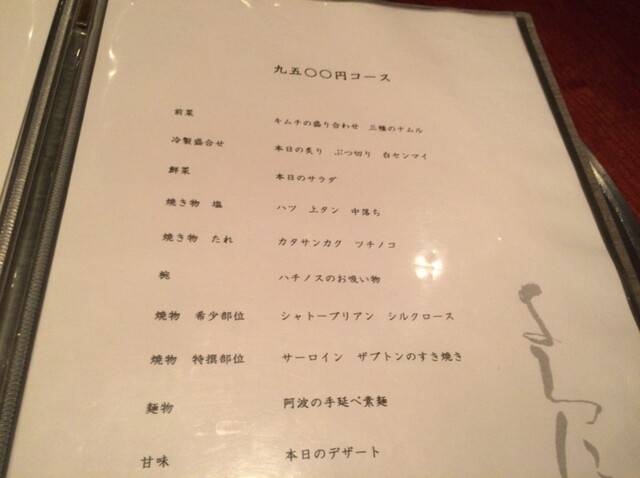 九五〇〇円コース
前菜 キムチの盛り合わせ 三種のナムル
冷製盛合せ 本日の炙り ぶつ切り 白センマイ
鮮菜 本日のサラダ
焼き物 塩 ハツ 上タン 中落ち
焼き物 たれ カタサンカク ツチノコ
椀 ハチノスのお吸い物
焼物 希少部位 シャトーブリアン シルクロース
焼物 特撰部位 サーロイン ザブトンのすき焼き
麺物 阿波の手延べ素麺
甘味 本日のデザート
よしに